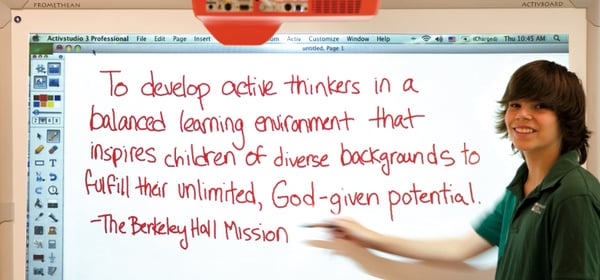 PROMETHEAN
ACTIVBOARD
Activstudio 3 Professional File Edit Page Insert Activ Customize Window Help (Charged) Thu 10:45 AM
untitled, Page 1
To develop active thinkers in a
balanced learning environment that
inspires children of diverse backgrounds to
fulfill their unlimited, God-given potential.
-The Berkeley Hall Mission